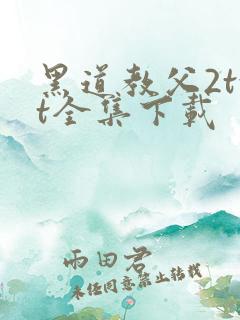 黑道教父2tx
t全集下载
雨田君
未经同意禁止转载